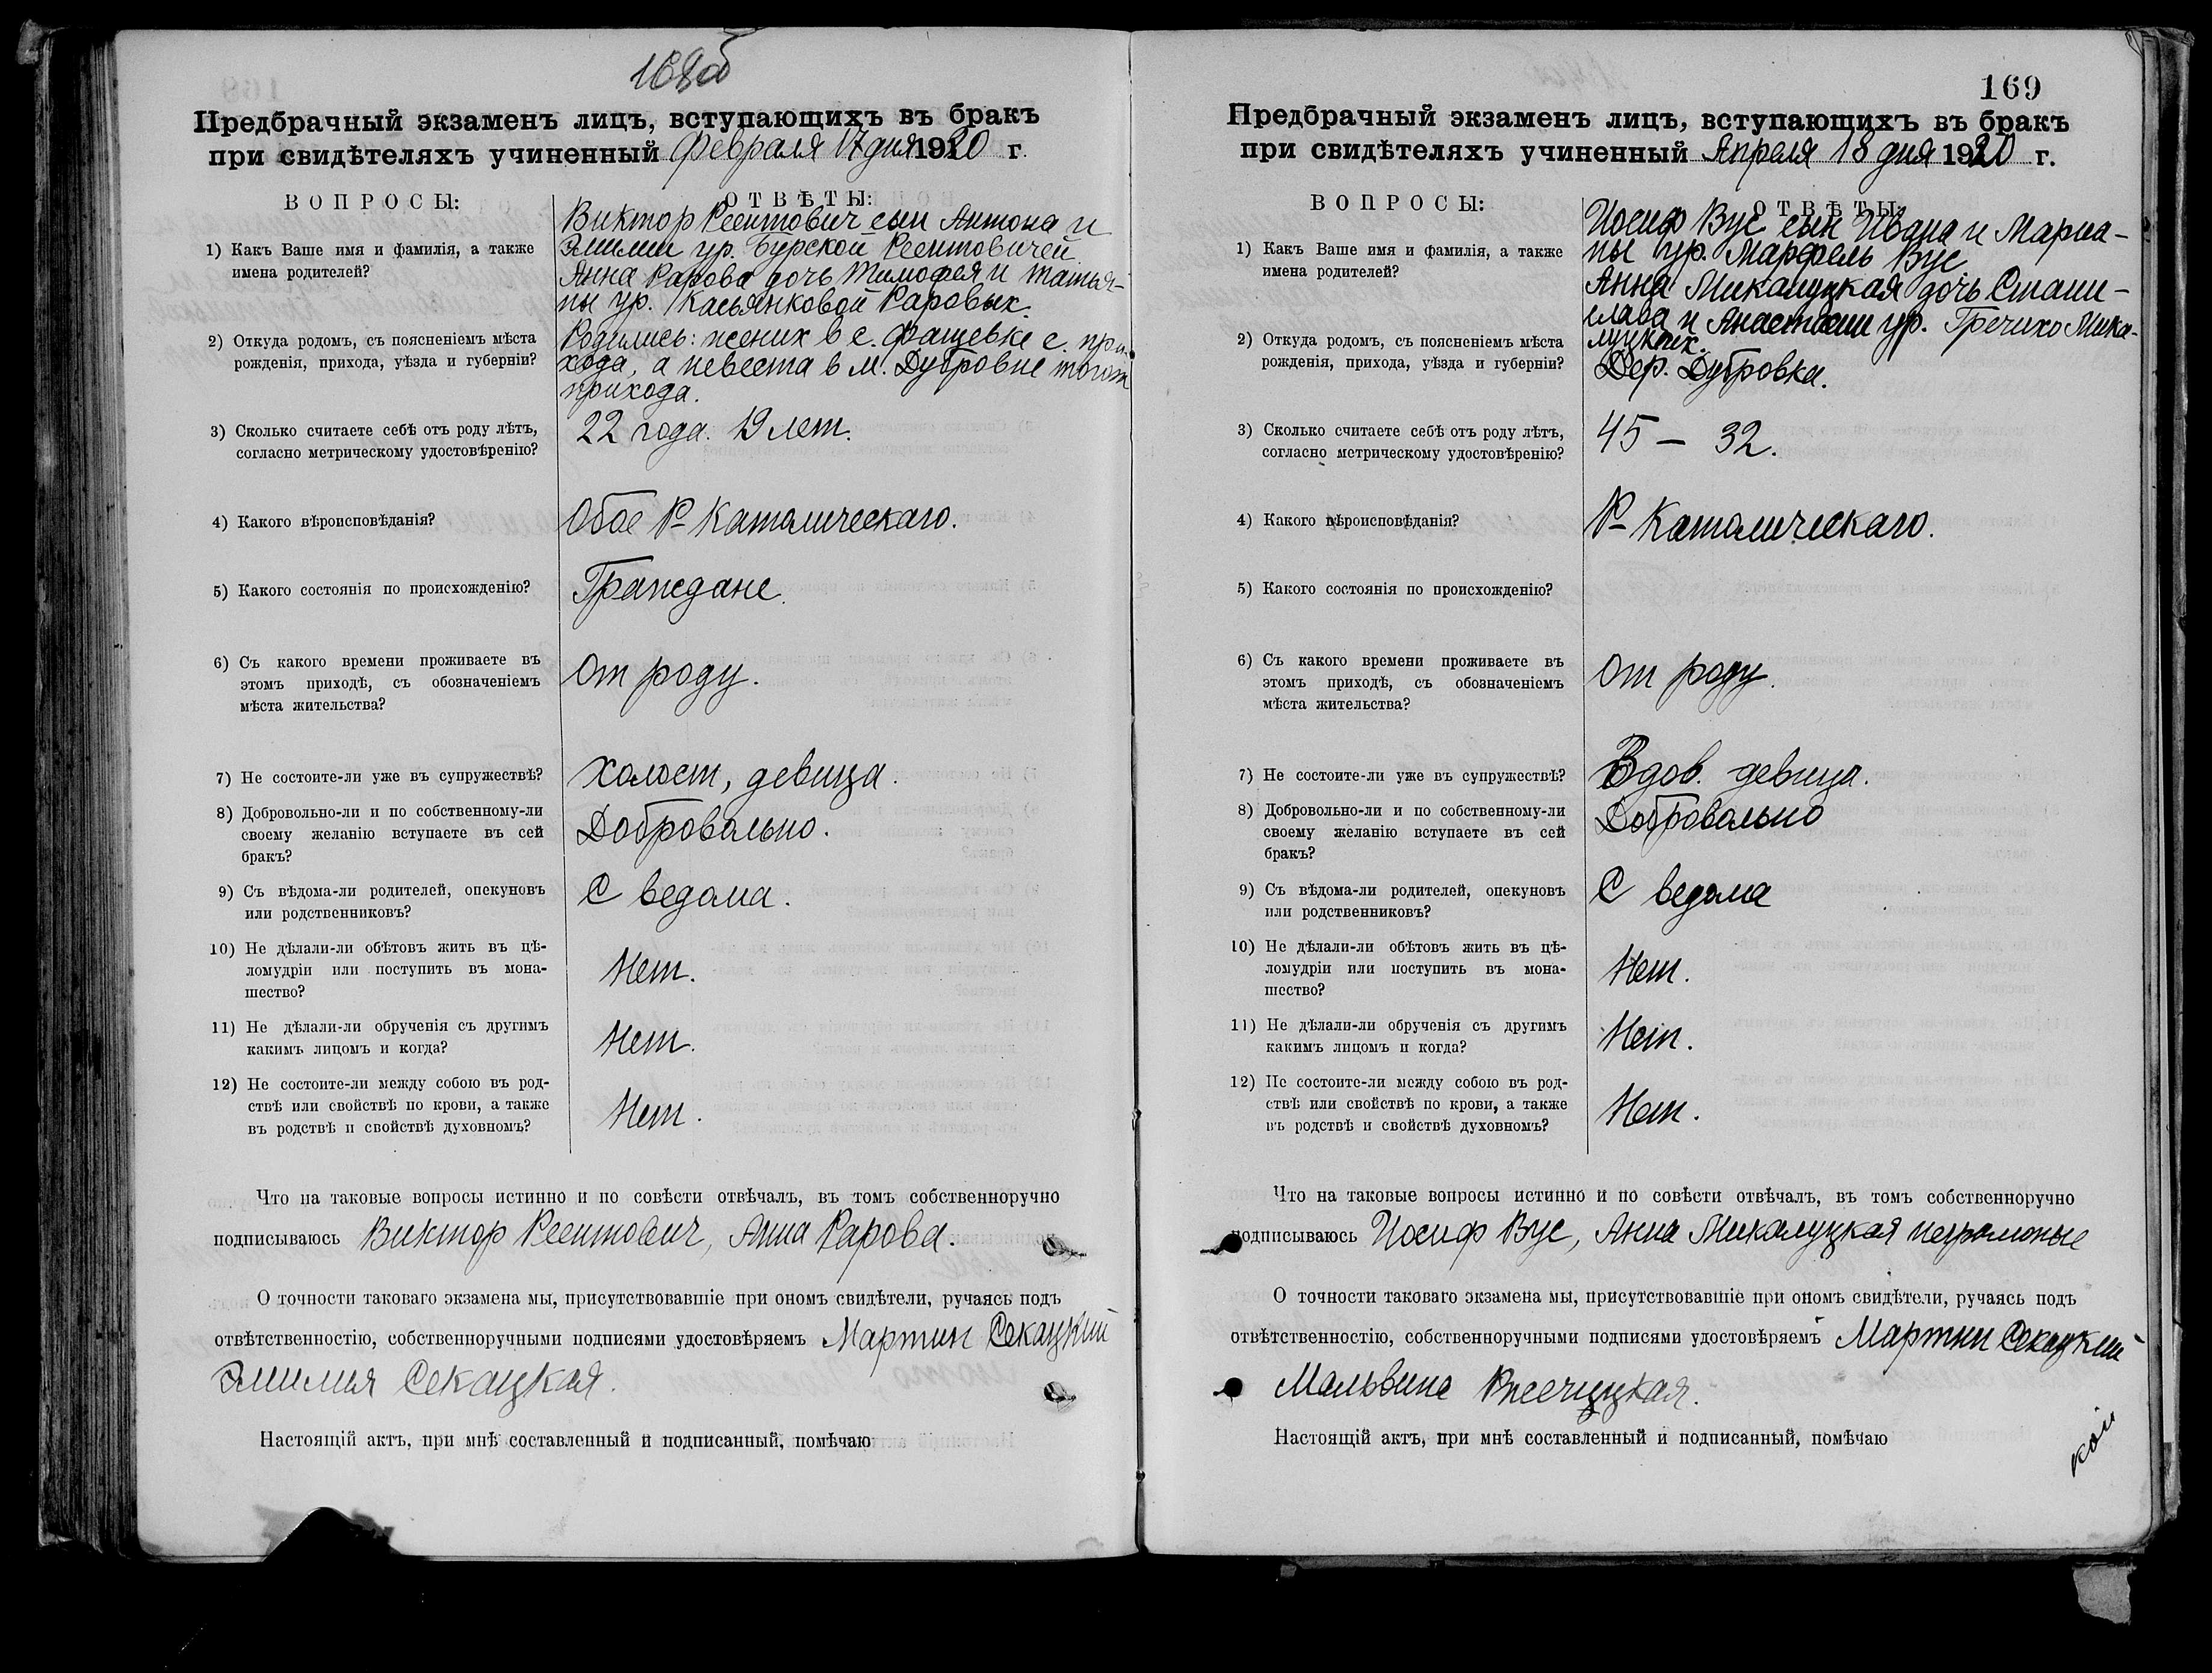 168об
Предбрачный экзаменъ лицъ, вступающихъ въ бракъ
при свидѣтеляхъ учиненный Февраля 17 дня 1920 г.
ВОПРОСЫ: ОТВѢТЫ:
1) Какъ Ваше имя и фамилія, а также
имена родителей?
Виктор Реентович сын Антона и
Эмилии ур. Бурской Реентовичей
Анна Рарова дочь Тимофея и Татья-
ны ур. Касьянковой Раровых.
2) Откуда родомъ, съ поясненіемъ мѣста
рожденія, прихода, уѣзда и губерніи?
Родились: жених в с. Фащевке с. при-
хода, а невеста в м. Дубровне тогож
прихода.
3) Сколько считаете себѣ отъ роду лѣтъ,
согласно метрическому удостовѣренію?
22 года. 19 лет.
4) Какого вѣроисповѣданія?
Обое Р-Католическаго.
5) Какого состоянія по происхожденію?
Граждане.
6) Съ какого времени проживаете въ
этомъ приходѣ, съ обозначеніемъ
мѣста жительства?
От роду.
7) Не состоите-ли уже въ супружествѣ?
Холост, девица.
8) Добровольно-ли и по собственному-ли
своему желанію вступаете въ сей
бракъ?
Добровольно.
9) Съ вѣдома-ли родителей, опекуновъ
или родственниковъ?
С ведома.
10) Не дѣлали-ли обѣтовъ жить въ цѣ-
ломудріи или поступить въ мона-
шество?
Нет.
11) Не дѣлали-ли обрученія съ другимъ
какимъ лицомъ и когда?
Нет.
12) Не состоите-ли между собою въ род-
ствѣ или свойствѣ по крови, а также
въ родствѣ и свойствѣ духовномъ?
Нет.
Что на таковые вопросы истинно и по совѣсти отвѣчалъ, въ томъ собственноручно
подписываюсь Виктор Реентович, Анна Рарова.
О точности таковаго экзамена мы, присутствовавшіе при ономъ свидѣтели, ручаясь подъ
отвѣтственностію, собственноручными подписями удостовѣряемъ Мартин Секацкий
Эмилия Секацкая.
Настоящій актъ, при мнѣ составленный и подписанный, помѣчаю
169
Предбрачный экзаменъ лицъ, вступающихъ въ бракъ
при свидѣтеляхъ учиненный Апреля 18 дня 1920 г.
ВОПРОСЫ: ОТВѢТЫ:
1) Какъ Ваше имя и фамилія, а также
имена родителей?
Иосиф Вус сын Ивана и Мариа-
ны ур. Марфель Вус
Анна Микалуцкая дочь Стани-
слава и Анастасии ур. Гречихо Мика-
луцких.
2) Откуда родомъ, съ поясненіемъ мѣста
рожденія, прихода, уѣзда и губерніи?
Дер. Дубровка.
3) Сколько считаете себѣ отъ роду лѣтъ,
согласно метрическому удостовѣренію?
45 - 32.
4) Какого вѣроисповѣданія?
Р-Католическаго.
5) Какого состоянія по происхожденію?
6) Съ какого времени проживаете въ
этомъ приходѣ, съ обозначеніемъ
мѣста жительства?
От роду.
7) Не состоите-ли уже въ супружествѣ?
Вдов. девица.
8) Добровольно-ли и по собственному-ли
своему желанію вступаете въ сей
бракъ?
Добровольно
9) Съ вѣдома-ли родителей, опекуновъ
или родственниковъ?
С ведома
10) Не дѣлали-ли обѣтовъ жить въ цѣ-
ломудріи или поступить въ мона-
шество?
Нет.
11) Не дѣлали-ли обрученія съ другимъ
какимъ лицомъ и когда?
Нет.
12) Не состоите-ли между собою въ род-
ствѣ или свойствѣ по крови, а также
въ родствѣ и свойствѣ духовномъ?
Нет.
Что на таковые вопросы истинно и по совѣсти отвѣчалъ, въ томъ собственноручно
подписываюсь Иосиф Вус, Анна Микалуцкая неграмоные
О точности таковаго экзамена мы, присутствовавшіе при ономъ свидѣтели, ручаясь подъ
отвѣтственностію, собственноручными подписями удостовѣряемъ Мартин Секацкий
Мальвина
Настоящій актъ, при мнѣ составленный и подписанный, помѣчаю